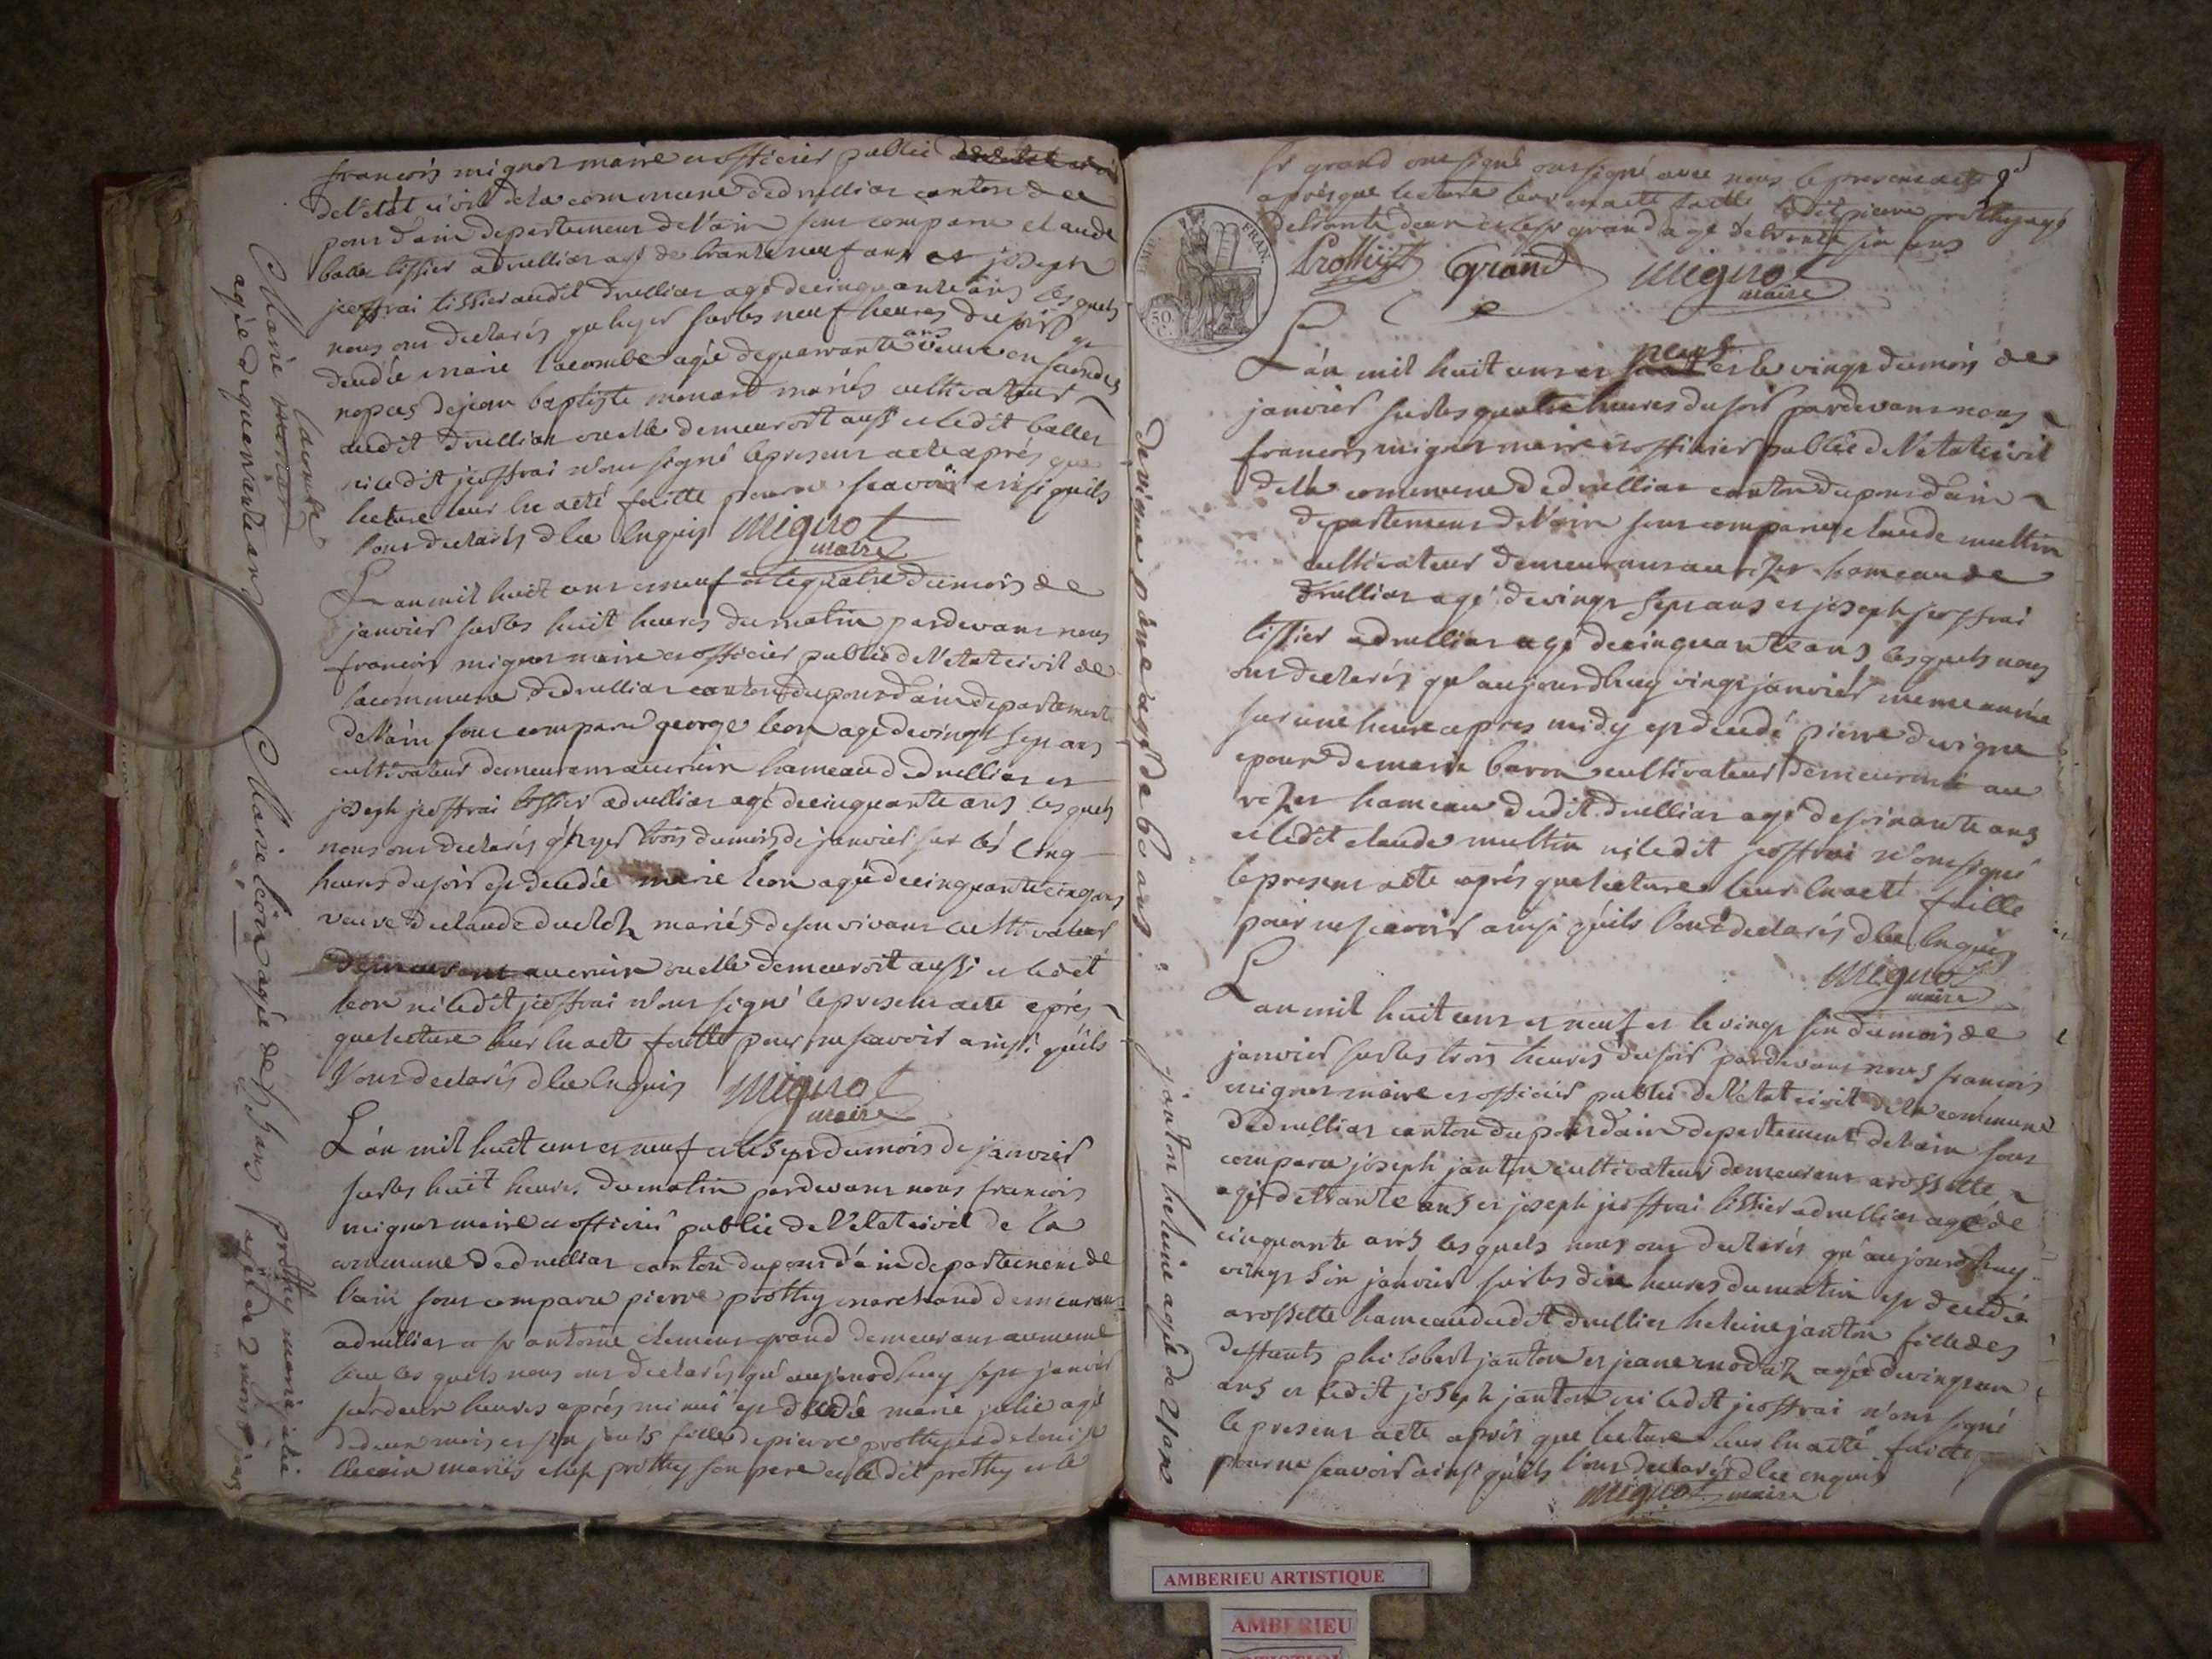 francois mignot maire et officier public
de l'état civil de la commune de druilliat canton de
pont d'ain departement de l'ain sont comparu claude
ballet tissier a druillat agé de trante neuf ans et joseph
jeoffrai tissier audit druillat agé de cinquante ans lesquels
nous ont declarés qu'hyer sur les neuf heures du soir est
decedée marie lacombe agée de quarante ans veuve en secondes
nopces de jean baptiste monard mariés cultivateur
audit druillat ou elle demeuroit aussi et ledit ballet
ni ledit jeoffrai n'ont signé le present acte aprés que
lecture leur en a eté faitte pour ne scavoir ainsi quils
l'ont declarés de ce enquis mignot
maire
L'an mil huit cent et neuf et le quatre du mois de
janvier sur les huit heures du matin pardevant nous
francois mignot maire et officier public de l'etat civil de
la commune de druilliat canton du pont d'ain departement
de l'ain sont comparu george leon agé de vingt sept ans
cultivateur demeurant au hameau de druilliat et
joseph jeoffrai tissier a druilliat agé de cinquante ans lesquels
nous ont declarés q'hyer trois du mois de janvier sur les cinq
heures du soir est decedée marie leon agée de cinquante cinq ans
veuve de claude mariés de son vivant cultivateur
ou elle demeuroit aussi et ledit
leon ni ledit jeoffrai n'ont signé le present acte aprés
que lecture leur en a eté faitte pour ne scavoir ainsi quils
l'ont declarés de ce enquis mignot
maire
L'an mil huit cent et neuf et le sept du mois de janvier
sur les huit heures du matin pardevant nous francois
mignot maire et officier public de l'état civil de la
commune de druilliat canton du pont d'ain departement de
l'ain sont comparu pierre prothy marchand demeurant
a druilliat et sr antoine clement grand demeurant au meme
lieu lesquels nous ont declarés qu'aujourd'huy sept janvier
sur deux heures aprés minuit est decedée marie julie agé
de deux mois et six jours fille de pierre prothy et de
mariés chez prothy son pere et ledit prothy et le
Marie lacombe
agée de quarante ans
Marie leon agée de 55 ans
prothy marie julie
agée de 2 mois 6 jours
sr grand ont signé avec nous le present acte
aprés que lecture leur en a eté faitte ledit pierre prothy agé
de trante deux et le sr grand agé de trente six ans
Prothy Grand mignot
maire
EMP. FRAN.
50 C.
L'an mil huit cent et neuf et le vingt du mois de
janvier sur les quatre heures du soir pardevant nous
francois mignot maire et officier public de l'etat civil
de la commune de druilliat canton du pont d'ain
departement de l'ain sont comparu claude multin
cultivateur demeurant au hameau de
druilliat agé de vingt sept ans et joseph jeoffrai
tissier a druilliat agé de cinquante ans lesquels nous
ont declarés qu'aujourdhuy vingt janvier meme année
sur une heure apres midy est decedé pierre devigne
epoux de marie baron cultivateur demeurant au
hameau dudit druilliat agé de soixante ans
et ledit claude multin ni ledit jeoffrai n'ont signé
le present acte aprés que lecture leur en a eté faitte
pour ne scavoir ainsi quils l'ont declarés de ce enquis
mignot
maire
L'an mil huit cent et neuf et le vingt six du mois de
janvier sur les trois heures du soir pardevant nous francois
mignot maire et officier public de l'état civil de la commune
de druilliat canton du pont d'ain departement de l'ain sont
comparu joseph janton cultivateur demeurant a rossette
agé de trante ans et joseph jeoffrai tissier a druilliat agé de
cinquante ans lesquels nous ont declarés qu'aujourdhuy
vingt six janvier sur les dix heures du matin est decedée
a rossette hameau dudit druilliat heleine janton fille des
deffunts philibert janton et jeane agée de vingt un
ans et ledit joseph janton ni ledit jeoffrai n'ont signé
le present acte aprés que lecture leur en a eté faitte
pour ne scavoir ainsi quils l'ont declarés de ce enquis
mignot maire
devigne pierre agé de 60 ans
janton heleine agée de 21 ans
AMBERIEU ARTISTIQUE
AMBERIEU